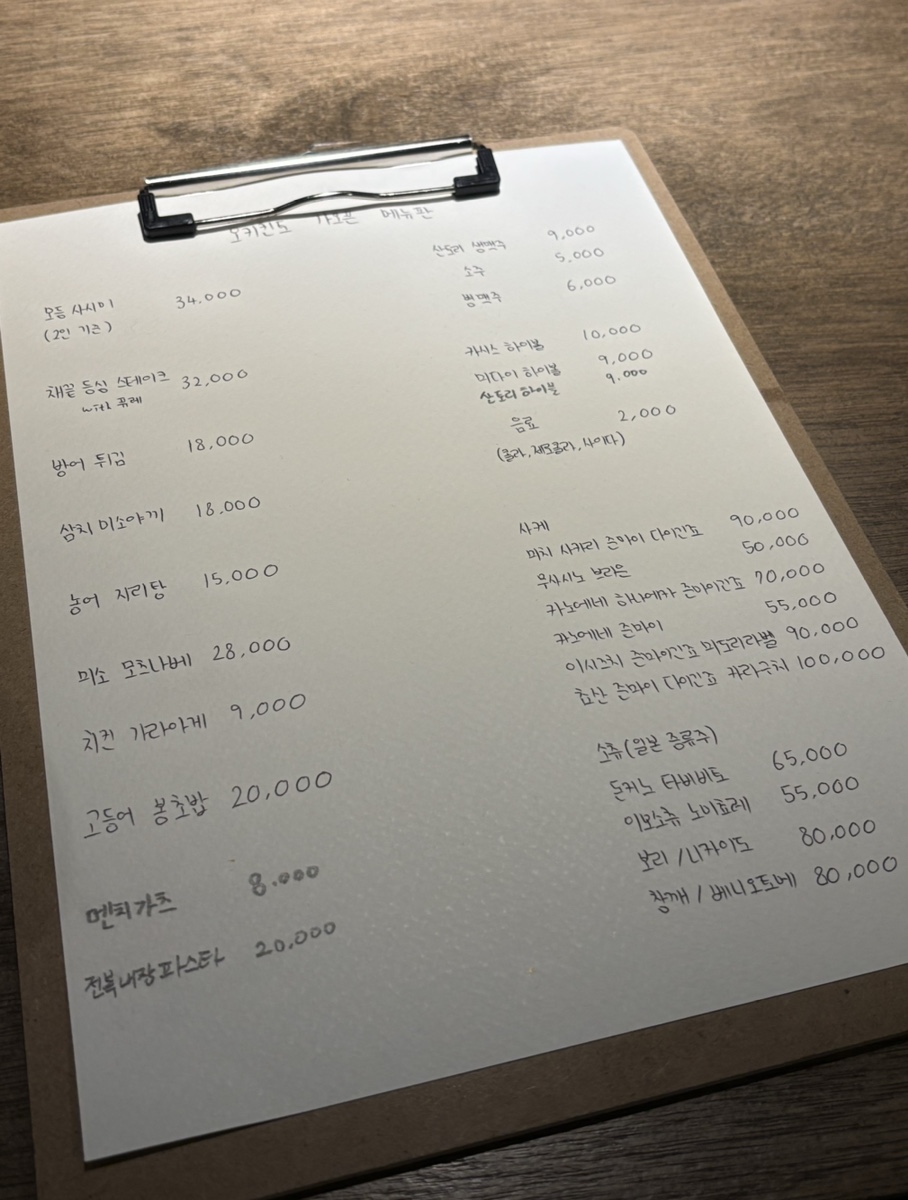 오키친노 가오픈 메뉴판
모듬 사시미 34,000
(2인 기준)
채끝 등심 스테이크 32,000
with 퓨레
방어 튀김 18,000
삼치 미소야끼 18,000
농어 지리탕 15,000
미소 모츠나베 28,000
치킨 가라아게 9,000
고등어 봉초밥 20,000
멘치가츠 8.000
전복내장파스타 20,000
산토리 생맥주 9,000
소주 5,000
병맥주 6,000
카시스 하이볼 10,000
미다이 하이볼 9,000
산토리 하이볼 9.000
음료 2,000
(콜라, 제로콜라, 사이다)
사케
미치 사카리 준마이 다이긴죠 90,000
무사시노 브라운 50,000
카노에네 히시에카 준마이긴죠 70,000
카노에네 준마이 55,000
이시즈치 준마이긴죠 미도리라벨 90,000
준마이 다이긴죠 카라구치 100,000
쇼츄(일본 증류주)
돈키노 타비비토 65,000
이모쇼츄 노미효레 55,000
보리 / 니카이도 80,000
참깨 / 베니오토메 80,000